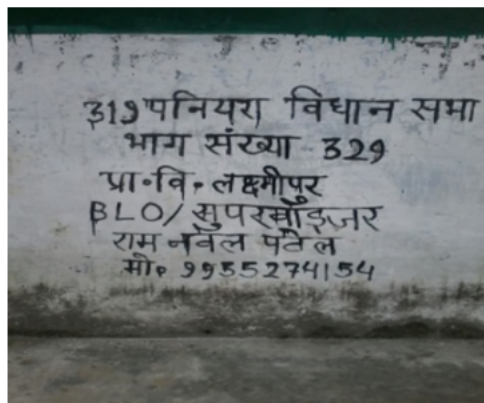 319 पनियरा विधान सभा
भाग संख्या 329
प्रा॰वि॰ लक्ष्मीपुर
BLO/सुपरवाँइजर
राम नवेल पटेल
मो॰ 9955274154